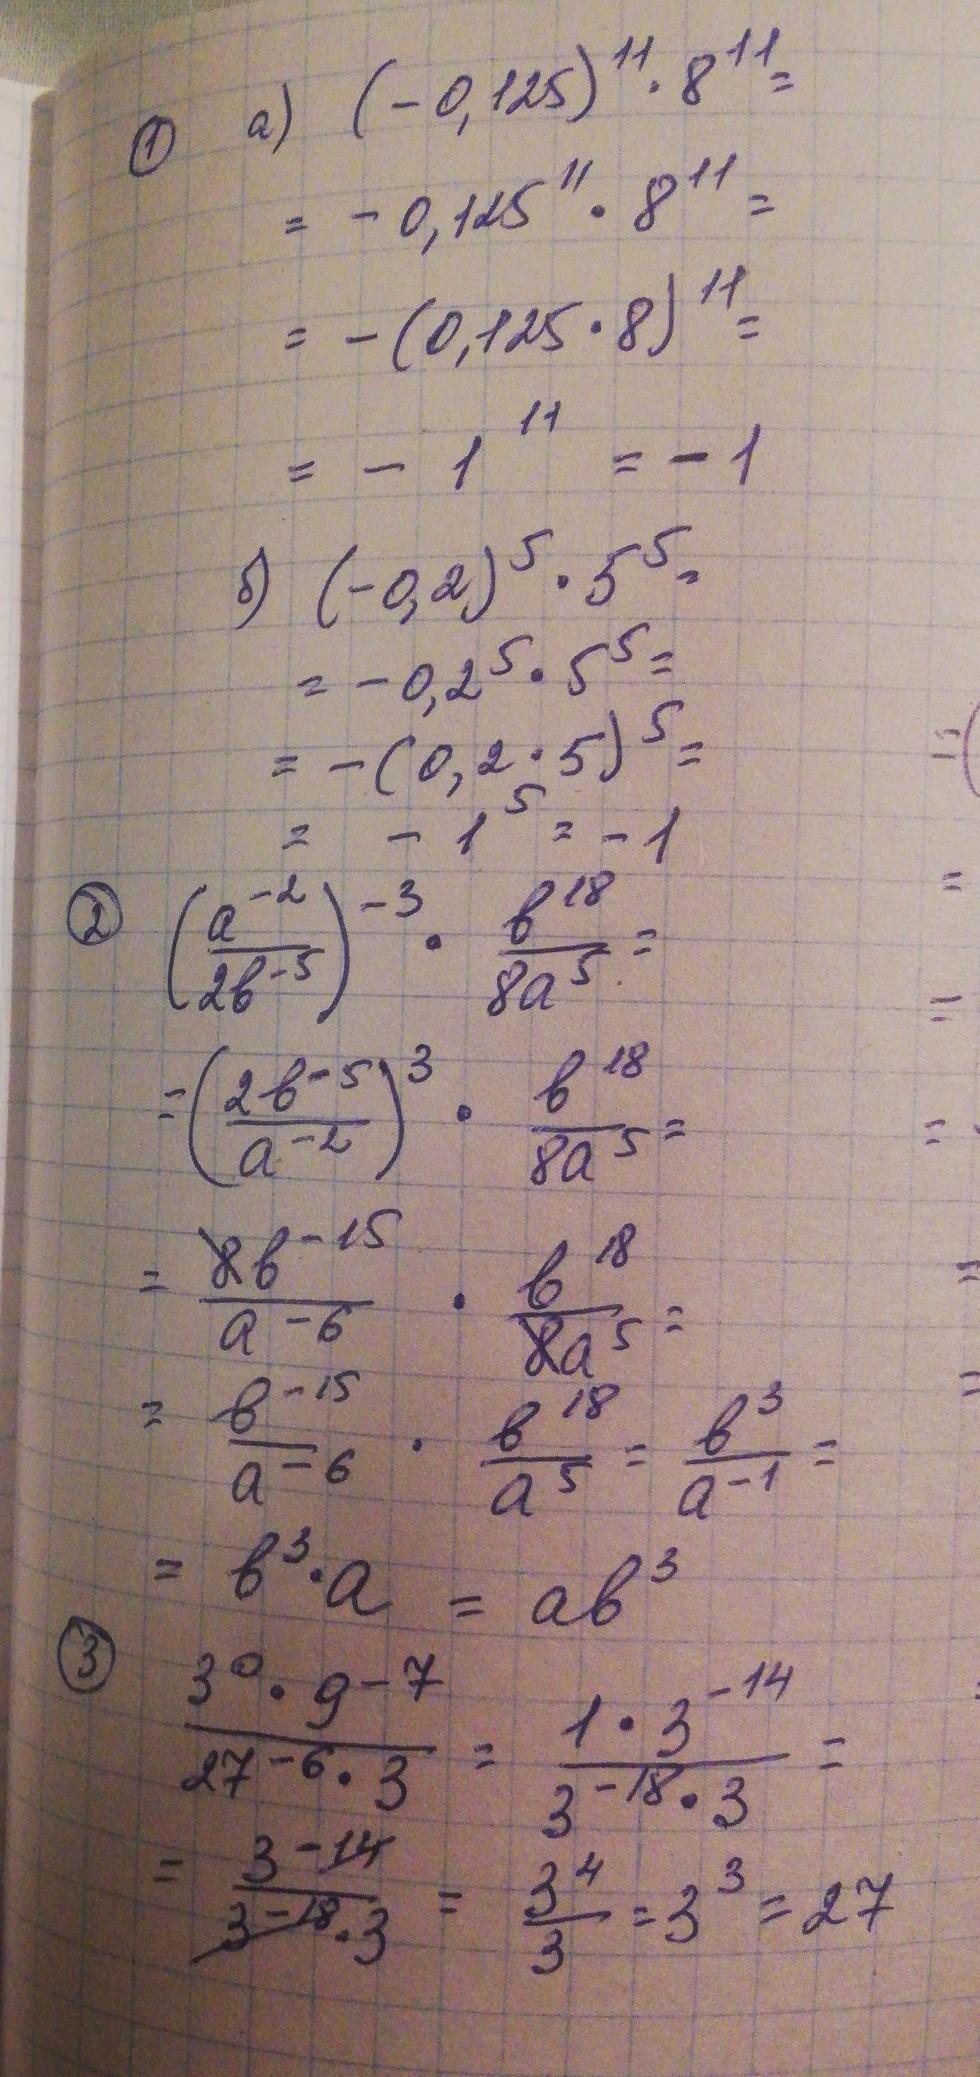 ① а) (-0,125)^11 · 8^11 =
= -0,125^11 · 8^11 =
= -(0,125 · 8)^11 =
= -1^11 = -1
б) (-0,2)^5 · 5^5 =
= -0,2^5 · 5^5 =
= -(0,2 · 5)^5 =
= -1^5 = -1
② (a^-2 / 2b^-5)^-3 · b^18 / 8a^5 =
= (2b^-5 / a^-2)^3 · b^18 / 8a^5 =
= 8b^-15 / a^-6 · b^18 / 8a^5 =
= b^-15 / a^-6 · b^18 / a^5 = b^3 / a^-1 =
= b^3 · a = ab^3
③ 3^0 · 9^-7 / 27^-6 · 3 = 1 · 3^-14 / 3^-18 · 3 =
= 3^-14 / 3^-18 · 3 = 3^4 / 3 = 3^3 = 27